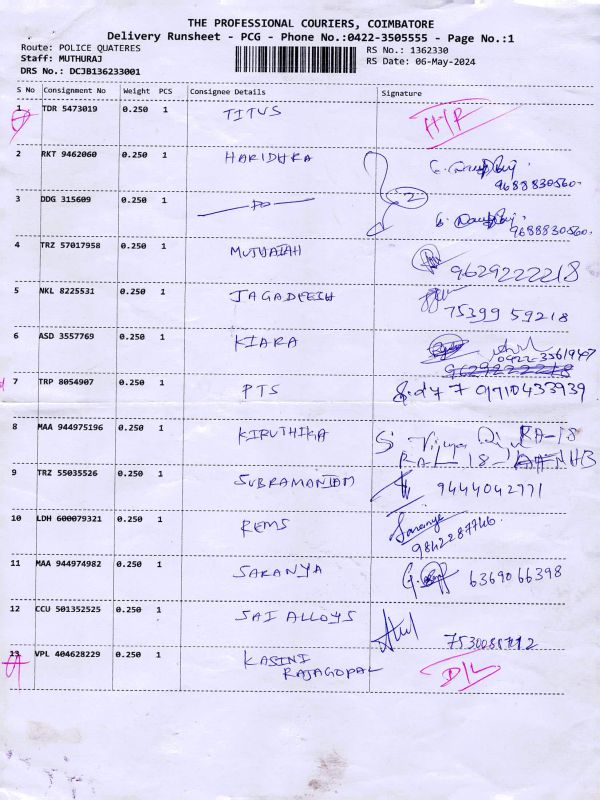 THE PROFESSIONAL COURIERS, COIMBATORE
Delivery Runsheet - PCG - Phone No.:0422-3505555 - Page No.:1
Route: POLICE QUATERES
RS No.: 1362330
Staff: MUTHURAJ
RS Date: 06-May-2024
DRS No.: DCJB136233001
S No Consignment No Weight PCS Consignee Details Signature
1 TDR 5473019 0.250 1 TITUS
2 RKT 9462060 0.250 1 HARIDHRA 9688830560.
3 DDG 315609 0.250 1 — Do — 2 9688830560.
4 TRZ 57017958 0.250 1 MUTUAIAH 9629222218
5 NKL 8225531 0.250 1 JAGADEESH 75399 59218
6 ASD 3557769 0.250 1 KIARA 0422-3561947
9629222218
7 TRP 8054907 0.250 1 PTS
8 MAA 944975196 0.250 1 KIRUTHIKA RA-18
9 TRZ 55035526 0.250 1 SUBRAMANIAM 9444042771
10 LDH 600079321 0.250 1 REMS Saranya
9842287746.
11 MAA 944974982 0.250 1 SARANYA 6369066398
12 CCU 501352525 0.250 1 SAI ALLOYS
13 VPL 404628229 0.250 1 KASINI
RAJAGOPAL D/L